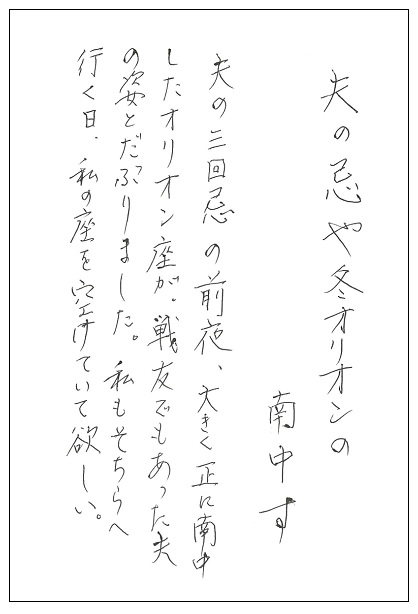 夫の忌や冬オリオンの
南中す
夫の三回忌の前夜、大きく正に南中
したオリオン座が。戦友でもあった夫
の姿とだぶりました。私もそちらへ
行く日、私の座を空けていて欲しい。